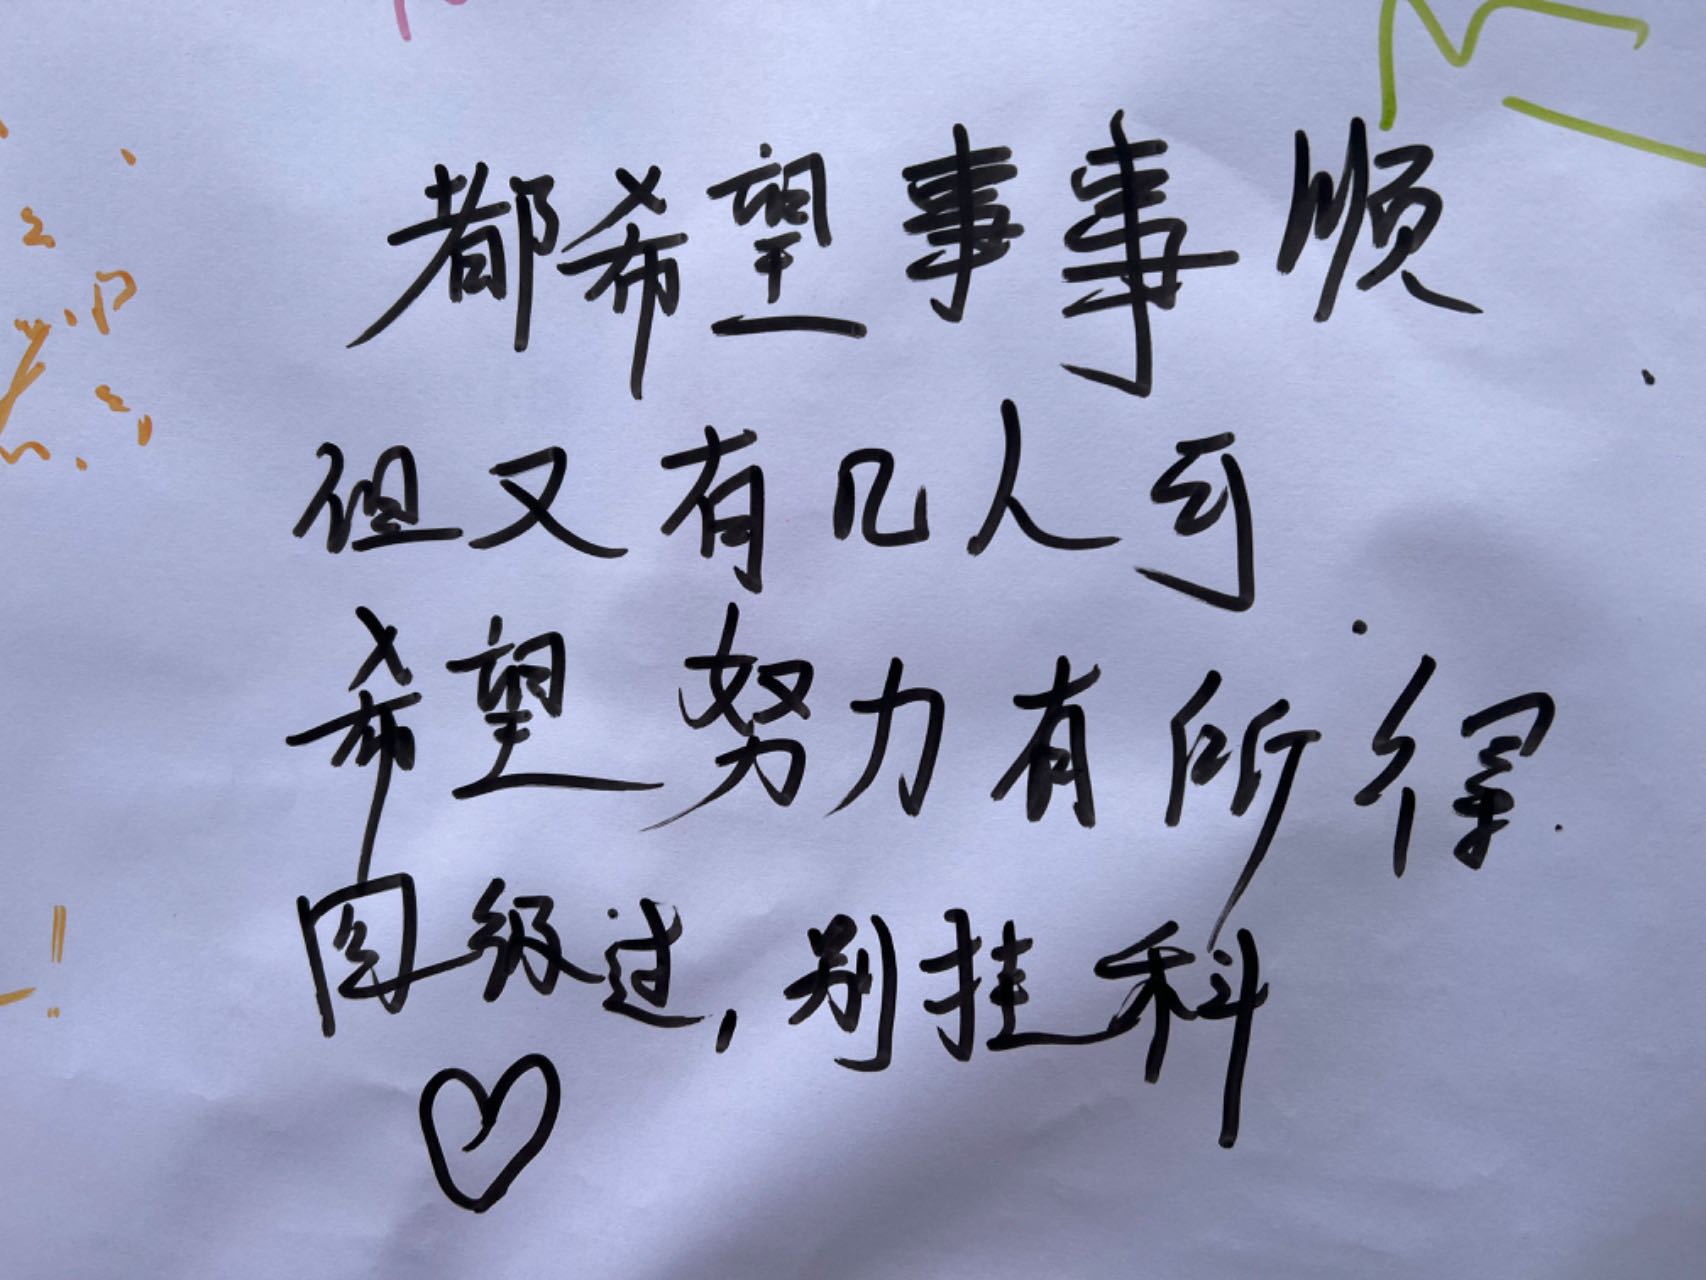 都希望事事顺
但又有几人可
希望努力有所得
国级过,别挂科